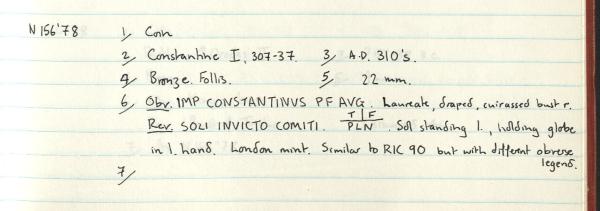 N 156'78 1/ Coin
2/ Constantine I, 307-37. 3/ A.D. 310's.
4/ Bronze Follis. 5/ 22 mm.
6/ Obv. IMP CONSTANTINVS PF AVG. Laureate, draped, cuirassed bust r.
Rev. SOLI INVICTO COMITI. T|F
PLN Sol standing l., holding globe
in l. hand. London mint. Similar to RIC 90 but with different obverse
legend.
7/